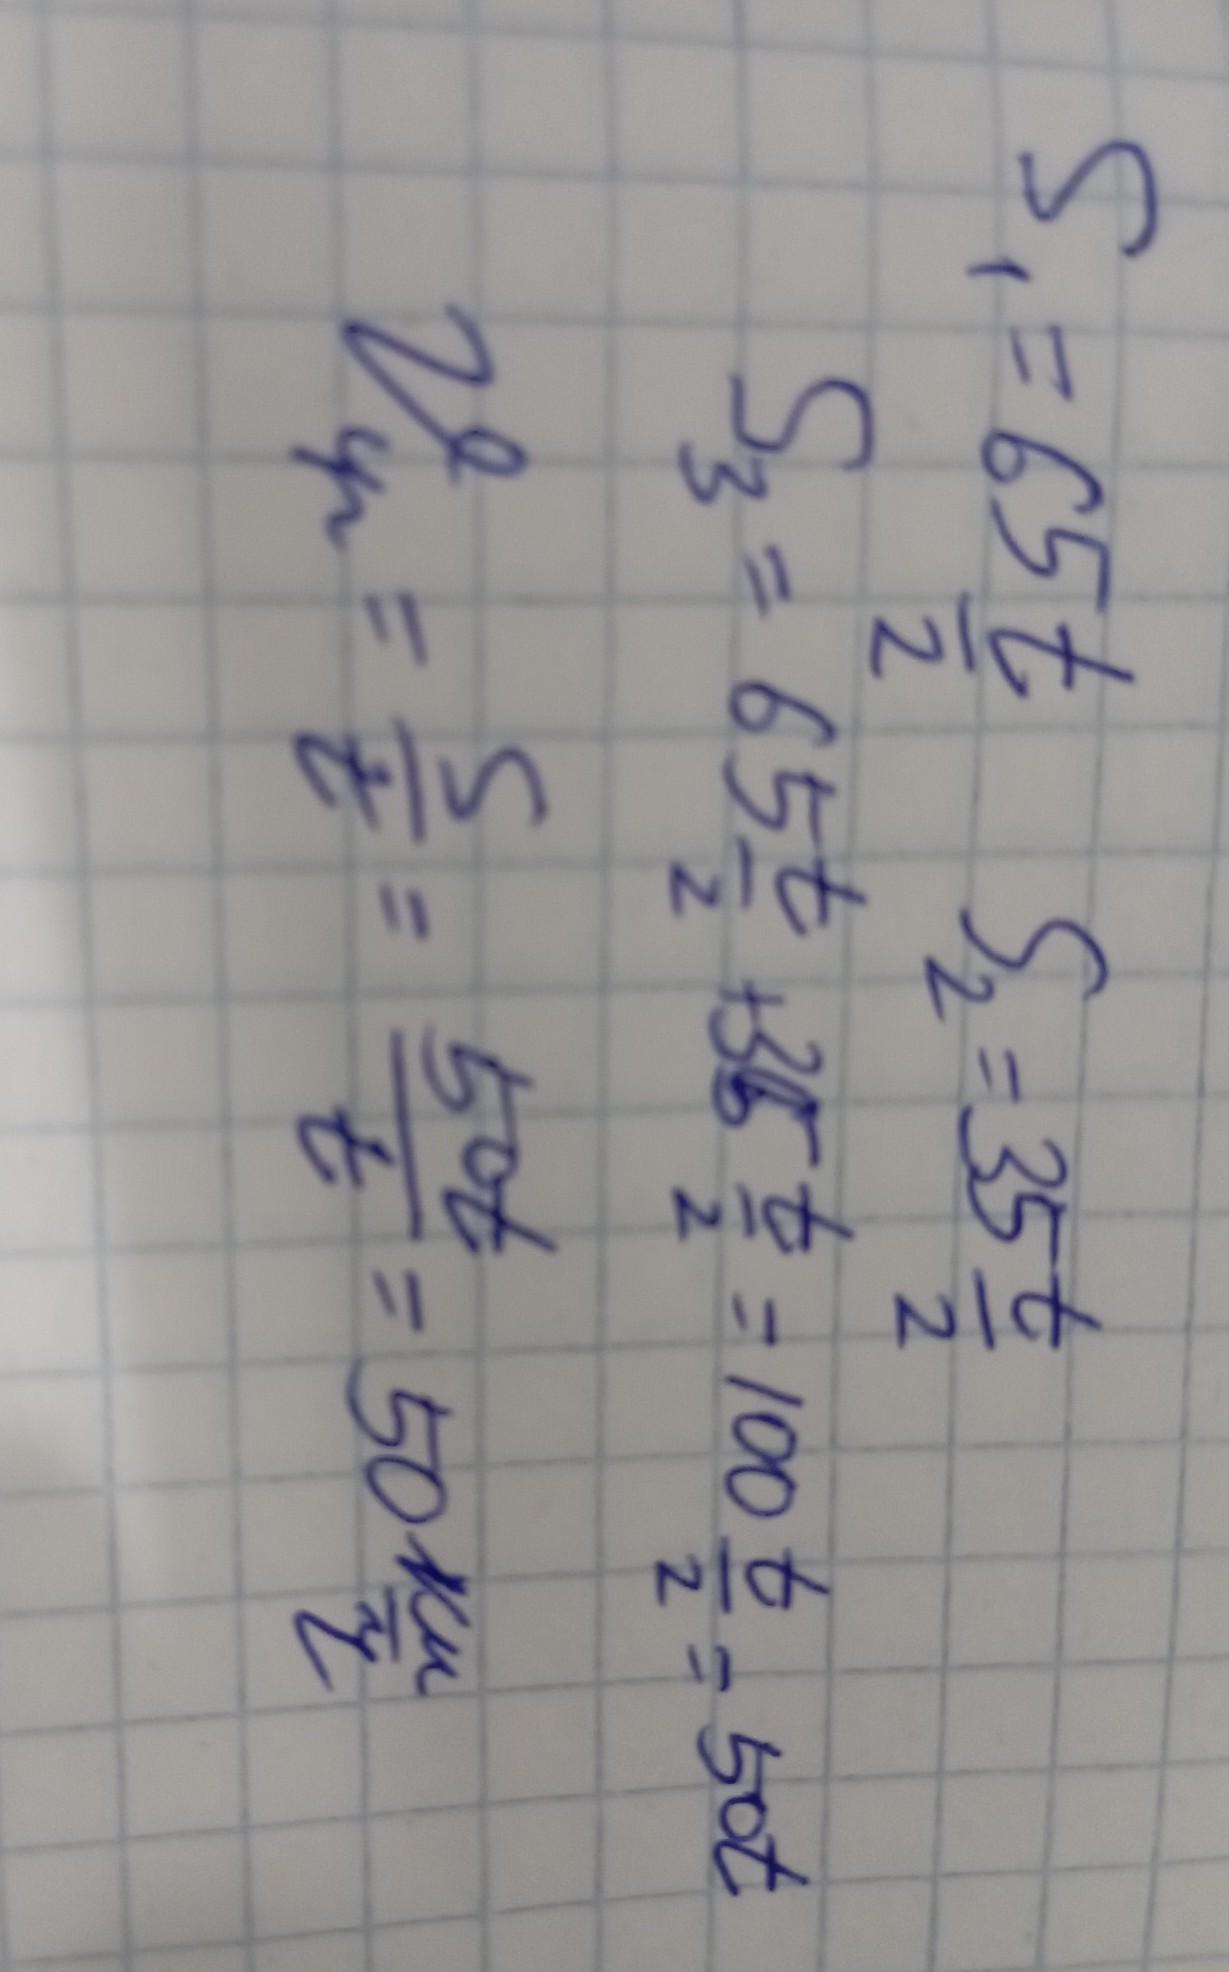 S₁ = 65 t/2 S₂ = 35 t/2
S₃ = 65 t/2 + 35 t/2 = 100 t/2 = 50t
= S/t = 50t/t = 50 км/